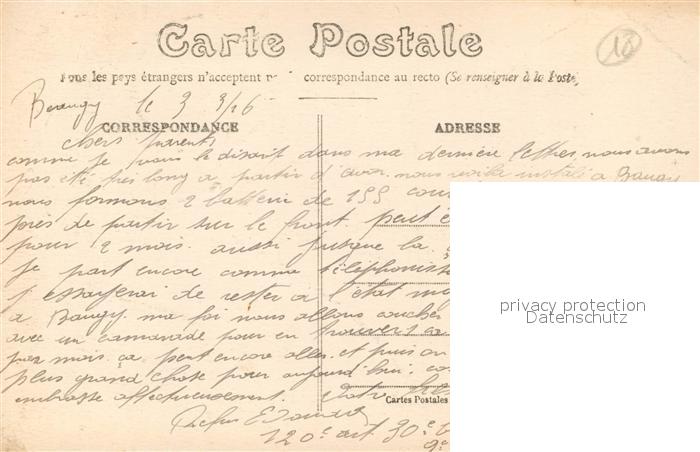 Carte Postale
18
Tous les pays étrangers n'acceptent pas correspondance au recto (Se renseigner à la Poste)
Baugy le 3 3/16
CORRESPONDANCE
ADRESSE
chers parents
comme je vous le disait dans ma dernière lettre, nous avons
pas été très long a partir d' nous voilà installé a Baugy
nous formons 2 batterie de 155
près de partir sur le front. peut
pour 2 mois. aussi jusque la
je part encore comme téléphoniste
j'essayerai de rester a l'état
a Baugy. ma foi nous allons coucher
avec un camarade pour en trouver
par mois. ça peut encore aller. et puis on
plus grand chose pour aujourd'hui.
embrasse affectueusement. Votre
Cartes Postales
120e art 30e
9e
privacy protection
Datenschutz